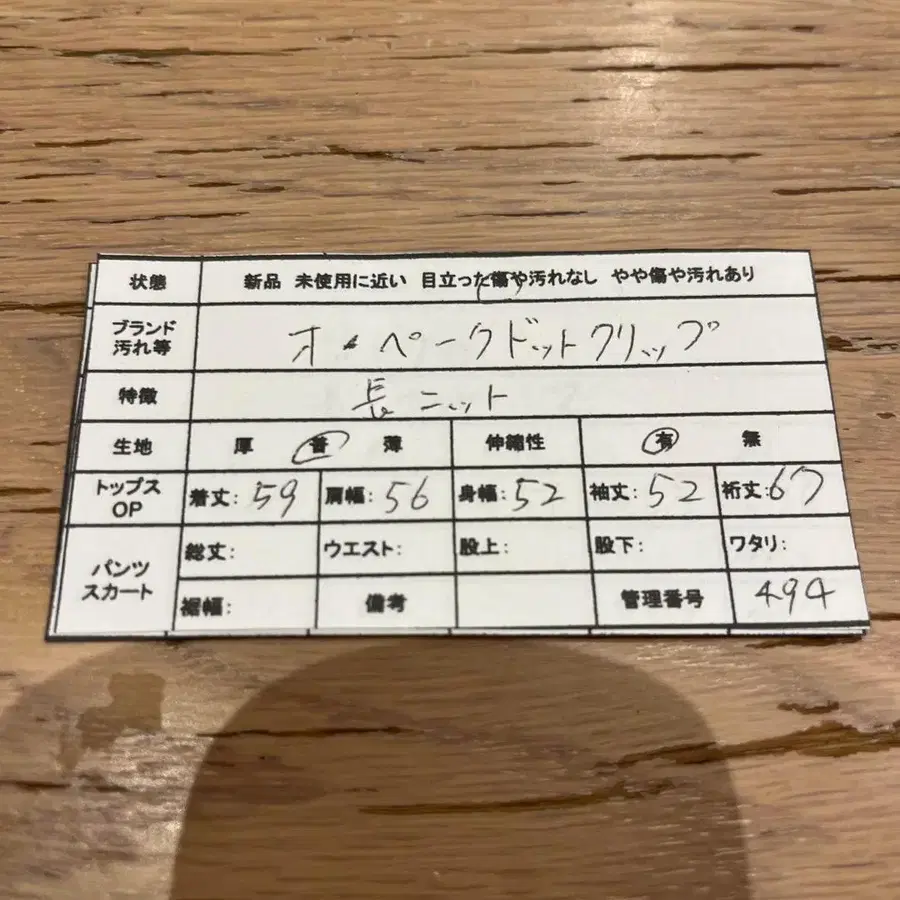 状態 新品 未使用に近い 目立った傷や汚れなし やや傷や汚れあり
ブランド 汚れ等 オ・ペークドットクリップ
特徴 長ニット
生地 厚 普 薄 伸縮性 有 無
トップス OP 着丈:59 肩幅:56 身幅:52 袖丈:52 裄丈:67
パンツ スカート 総丈: ウエスト: 股上: 股下: ワタリ:
裾幅: 備考 管理番号 494